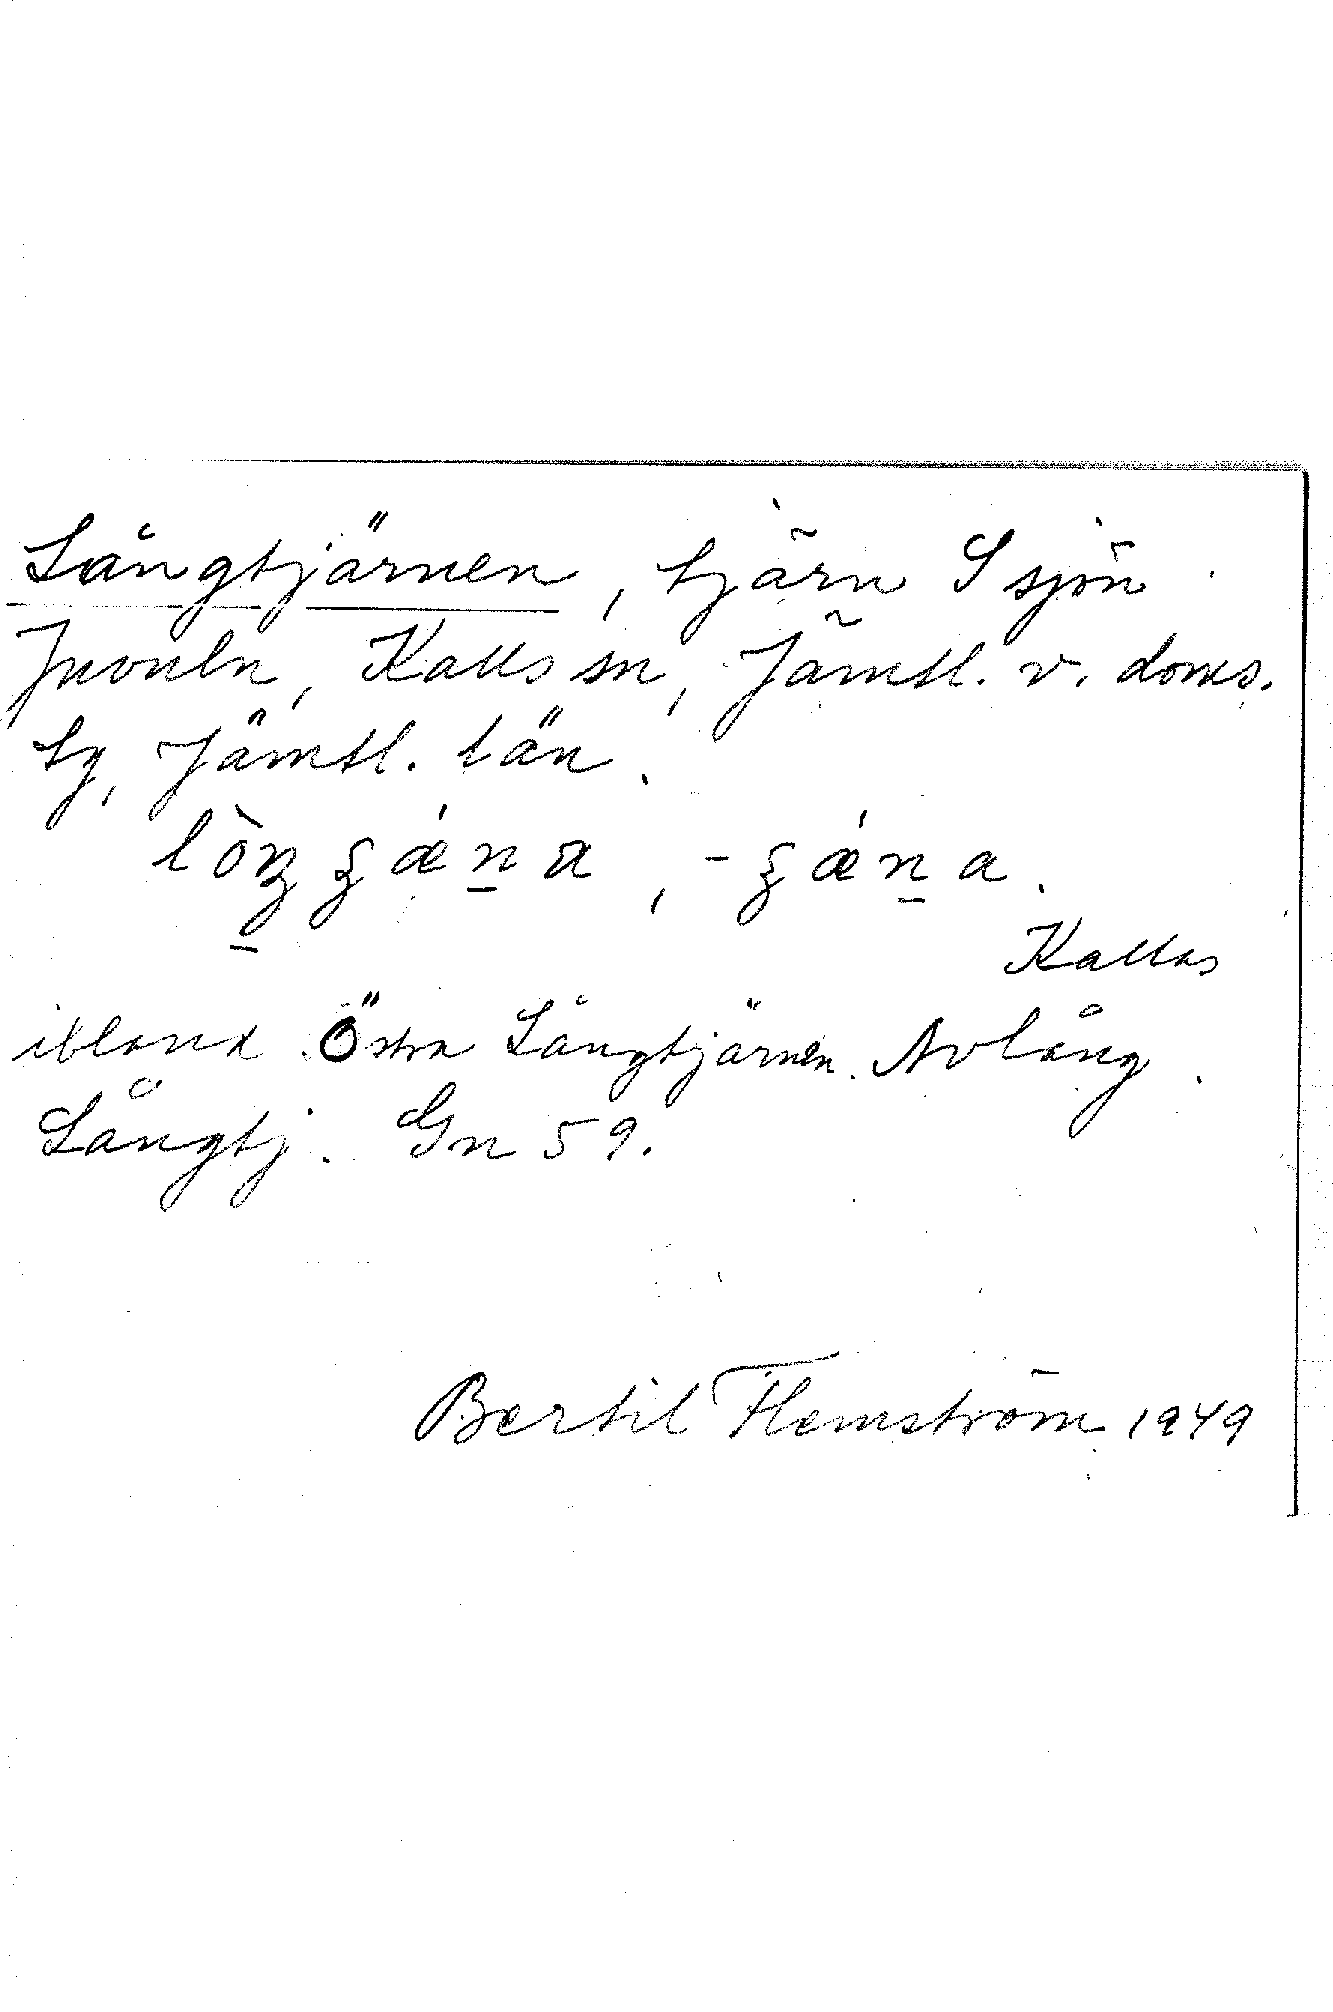 Långtjärnen, tjärn S sjön
Juvuln, Kalls sn, Jämtl. v. doms.
tg, Jämtl. län.
lòŋʒǽṇa, -ʒǽṇa.
Kallas
ibland Östra Långtjärnen. Avlång.
Långtj. Gn 59.
Bertil Flemström 1949